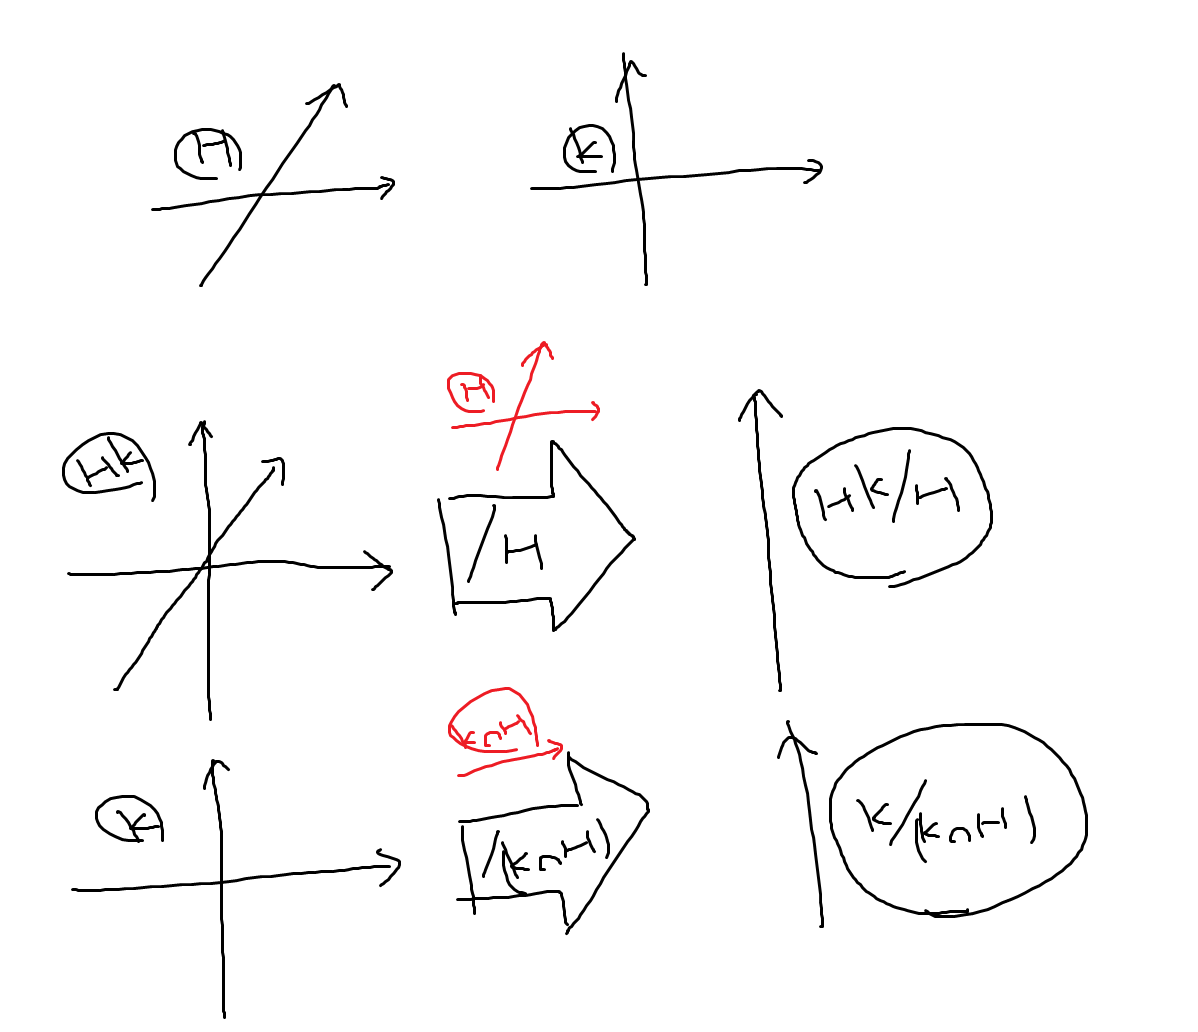 H
K
H
HK
/H
HK/H
K∩H
K
/(K∩H)
K/(K∩H)